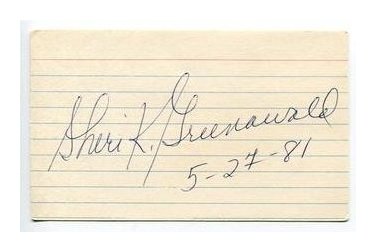 Sheri K. Greenawald
5-27-81